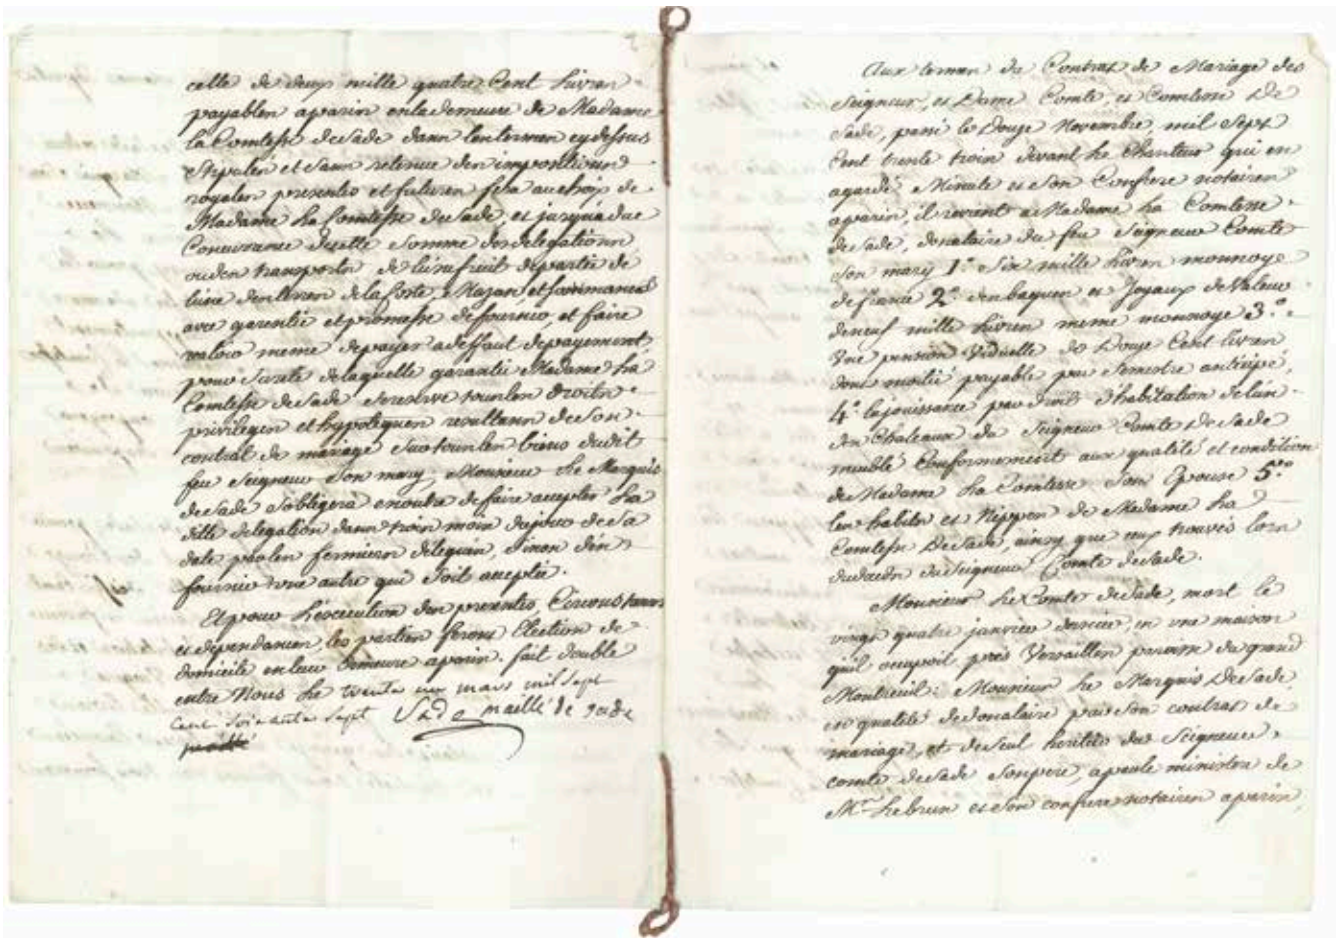 celle de deux mille quatre Cent Livres
payables aparis en la demeure de Madame
la Comtesse de Sade dans les termes cy dessus
Stipulés et sans retenue des impositions
royales presentes et futures fera au choix de
Madame La Comtesse de Sade, et jusqu'a due
Concurrance de cette Somme des delegations
ou des transports de l'usufruit de partie de
terres de la Coste, Mazan, et
avec garentie et promesse de fournir, et faire
valoir meme de payer a deffaut de payement,
pour Sureté de laquelle garantie Madame La
Comtesse de Sade Se reserve tous les droits
privileges et hypoteques resultans de Son
contrat de mariage Sur tous les biens dudit
feu Seigneur Son mary, Monsieur Le Marquis
de Sade S'obligera en outre de faire accepter La
ditte delegation dans trois mois du jour de Sa
date par les fermiers délégués, Sinon d'en
fournir une autre qui Soit acceptée.
Et pour L'éxécution des presentes, Circonstances
et dependances, les parties feront Election de
domicile en leur demeure aparis. fait double
entre Nous Le trente un mars mil Sept
Cent Soixante Sept Sade maillé de sade
Aux termes du Contrat de Mariage des
Seigneur, et Dame Comte, et Comtesse De
Sade, passé le Douze Novembre, mil Sept
Cent trente trois devant Le Chanteur qui en
agardé Minute et Son Confrere notaires
aparis, il revient a Madame La Comtesse
de Sade, donataire du feu Seigneur Comte
Son mary 1.º Six mille Livres monnoye
de france 2.º des bagues et Joyaux de Valeur
de neuf mille Livres meme monnoye 3.º
Une pension Viduelle de Douze Cent Livres
dont moitié payable par Semestre anticipé,
4.º la jouissance par droit d'habitation de l'un
des Chateaux du Seigneur Comte De Sade
meublé Conformement aux qualité et condition
de Madame La Comtesse Son Epouse 5.º
les habits et Nippes de Madame La
Comtesse De Sade, ainsy que eux trouvés lors
du decés du Seigneur Comte de Sade.
Monsieur Le Comte de Sade, mort le
vingt quatre janvier dernier, en une maison
qu'il occupoit, près Versailles paroisse du grand
Montreuil: Monsieur Le Marquis De Sade,
en qualité de donataire par Son contrat de
mariage, et de Seul heritier du Seigneur
comte de Sade Son pere, a par le ministre de
M.r Le brun et Son confrere notaires aparis,